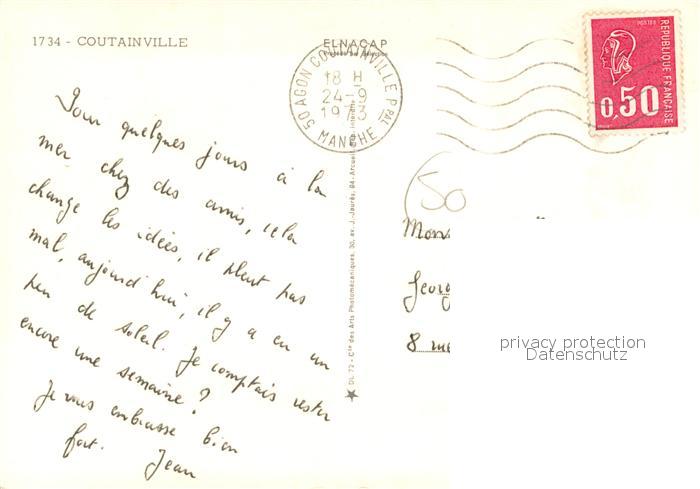 1734 - COUTAINVILLE
ELNACAP
50 AGON COUTAINVILLE PPAL
18 H
24-9
1973
MANCHE
POSTES
REPUBLIQUE FRANÇAISE
0,50
Pour quelques jours à la
mer chez des amis, cela
change les idées, il pleut pas
mal, aujourd'hui, il y a eu un
peu de soleil. Je comptais rester
encore une semaine ?
Je vous embrasse bien
fort. Jean
DL 72 - Cie des Arts Photomécaniques, 30, av. J.-Jaurès, 94-Arcueil
Interdite
50
Mon
Georg
8
privacy protection
Datenschutz